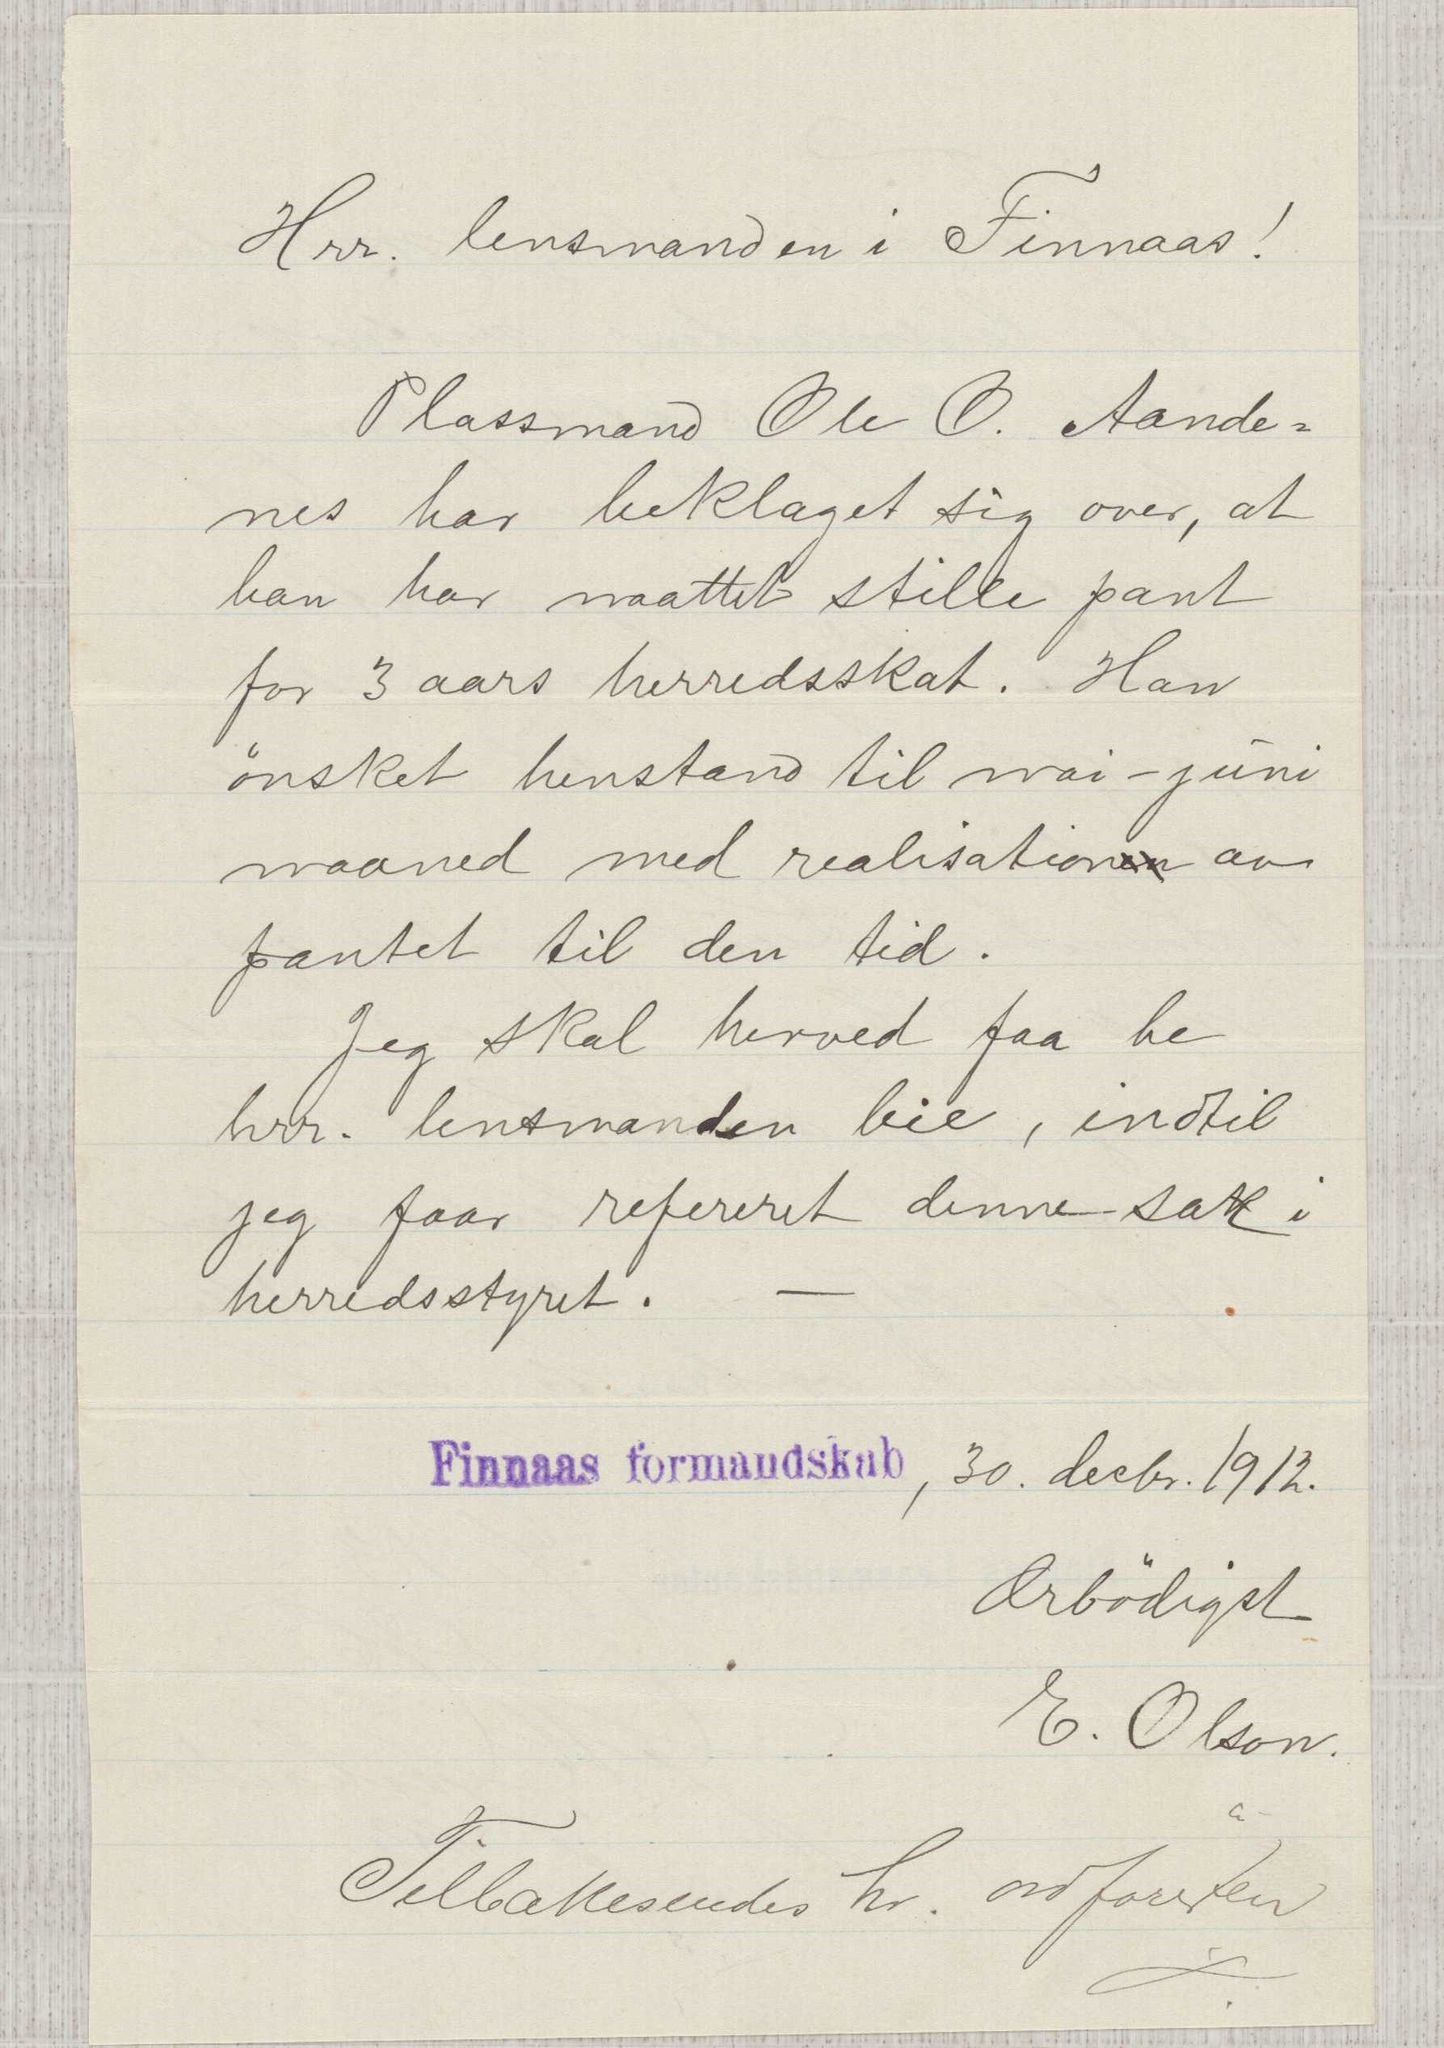 Hrr. lensmanden i Finnaas!
Plassmand Ole O. Aande=
nes har beklaget sig over, at
han har maattet stille pant
for 3 aars herredsskat. Han
önsket henstand til mai - juni
maaned med realisation av
pantet til den tid.
Jeg skal herved faa be
hrr. lensmanden bie, indtil
jeg faar refereret denne sak i
herredsstyret. —
Finnaas formandskab, 30. decbr. 1912.
Ærbödigst
E. Olson.
Tilbakesendes hr. ordföreren